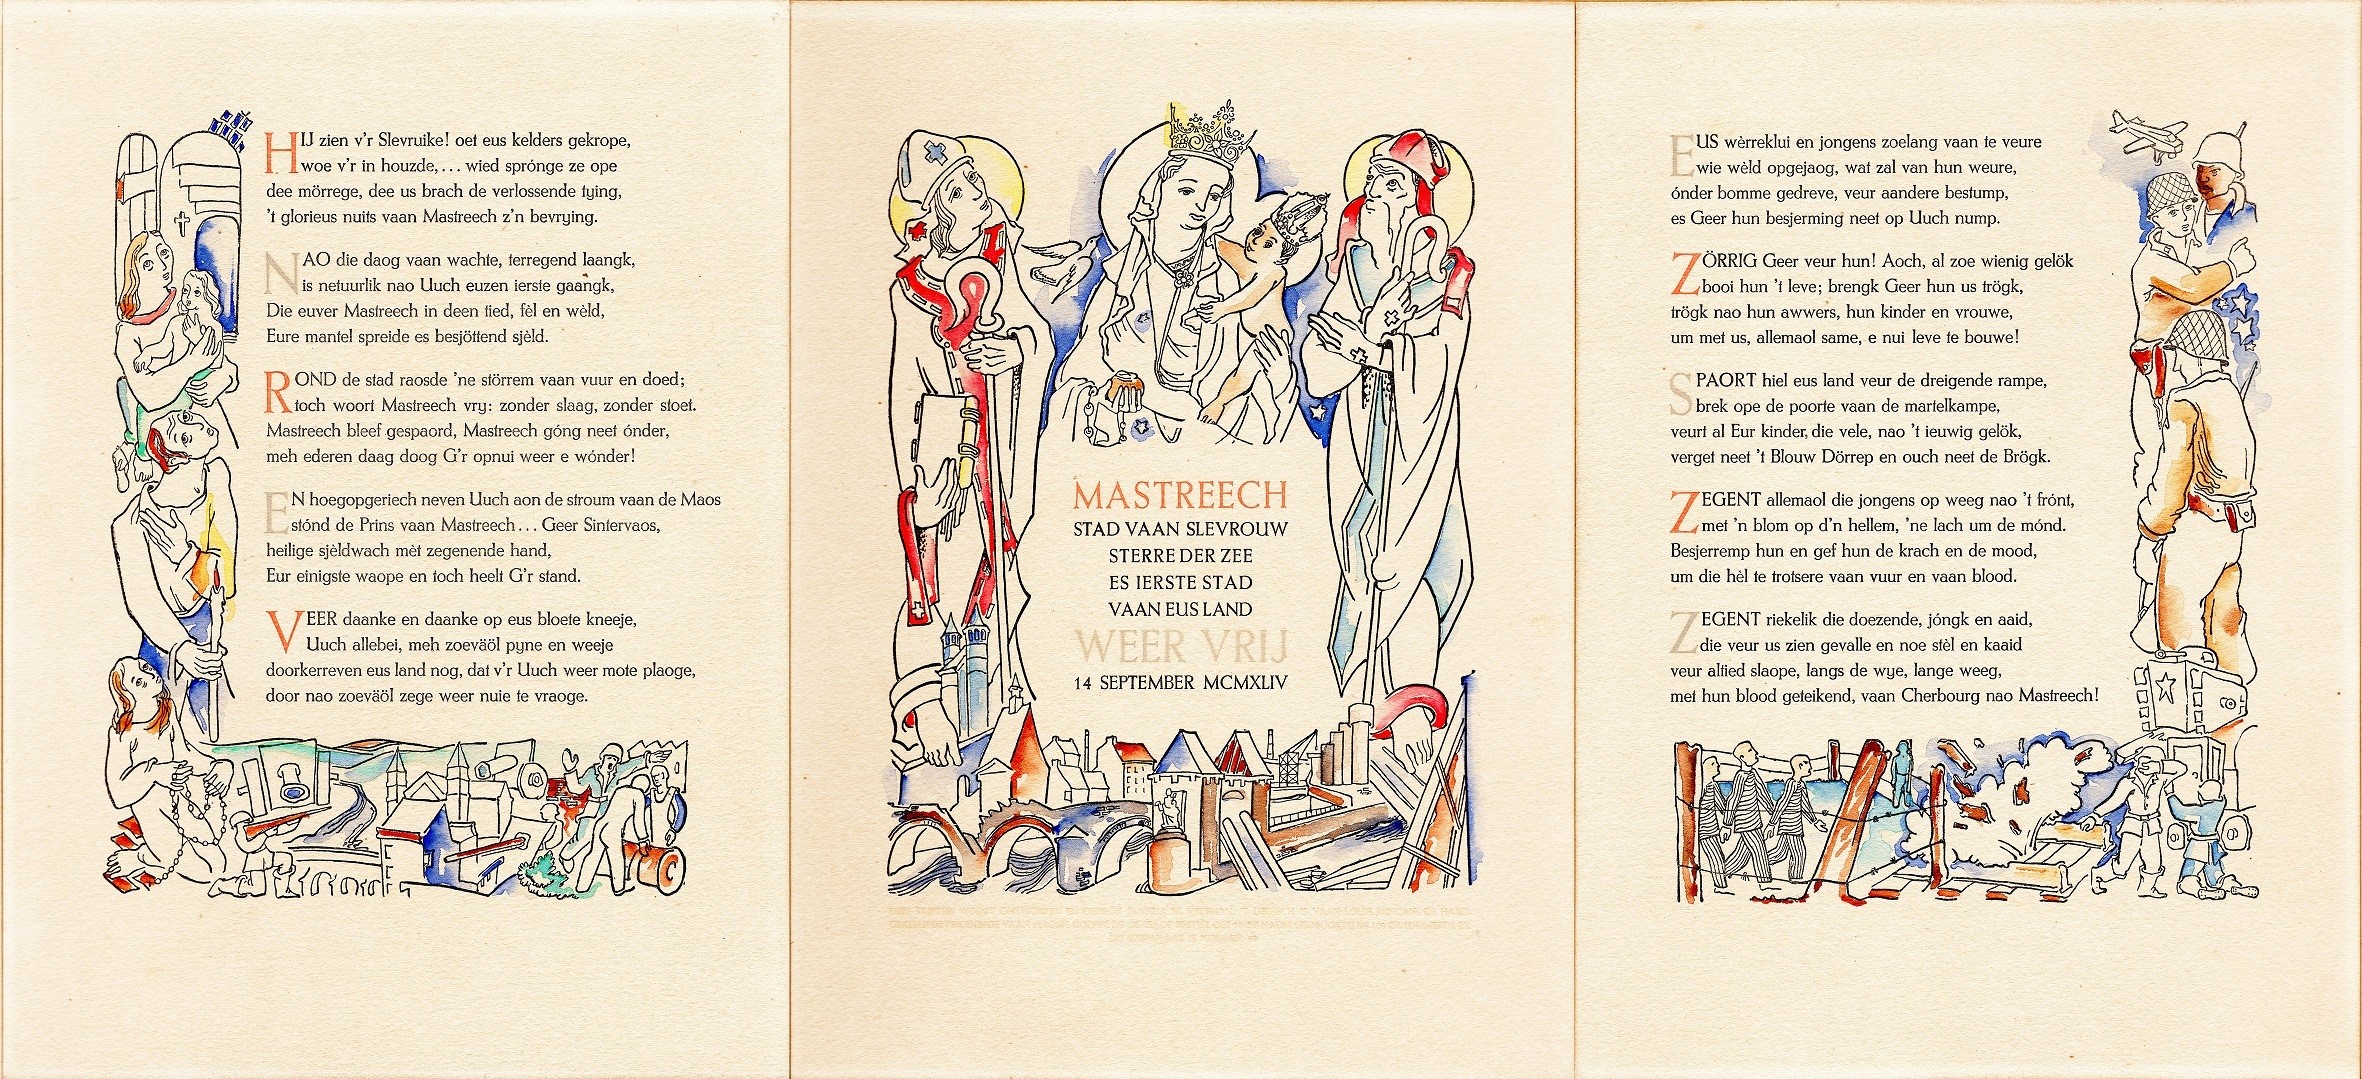 HIJ zien v'r Slevruike! oet eus kelders gekrope,
woe v'r in houzde,... wied sprónge ze ope
dee mörrege, dee us brach de verlossende tying,
't glorieus nuits vaan Mastreech z'n bevrying.
NAO die daog vaan wachte, terregend laangk,
is netuurlik nao Uuch euzen ierste gaangk,
Die euver Mastreech in deen tied, fèl en wèld,
Eure mantel spreide es besjöttend sjèld.
ROND de stad raosde 'ne störrem vaan vuur en doed;
toch woort Mastreech vry: zonder slaag, zonder stoet.
Mastreech bleef gespaord, Mastreech góng neet ónder,
meh ederen daag doog G'r opnui weer e wónder!
EN hoegopgeriech neven Uuch aon de stroum vaan de Maos
stónd de Prins vaan Mastreech... Geer Sintervaos,
heilige sjèldwach mèt zegenende hand,
Eur einigste waope en toch heelt G'r stand.
VEER daanke en daanke op eus bloete kneeje,
Uuch allebei, meh zoeväöl pyne en weeje
doorkerreven eus land nog, dat v'r Uuch weer mote plaoge,
door nao zoeväöl zege weer nuie te vraoge.
MASTREECH
STAD VAAN SLEVROUW
STERRE DER ZEE
ES IERSTE STAD
VAAN EUS LAND
WEER VRIJ
14 SEPTEMBER MCMXLIV
EUS wèrreklui en jongens zoelang vaan te veure
wie wèld opgejaog, wat zal van hun weure,
ónder bomme gedreve, veur aandere bestump,
es Geer hun besjerming neet op Uuch nump.
ZÖRRIG Geer veur hun! Aoch, al zoe wienig gelök
booi hun 't leve; brengk Geer hun us trögk,
trögk nao hun awwers, hun kinder en vrouwe,
um met us, allemaol same, e nui leve te bouwe!
SPAORT hiel eus land veur de dreigende rampe,
brek ope de poorte vaan de martelkampe,
veurt al Eur kinder, die vele, nao 't ieuwig gelök,
verget neet 't Blouw Dörrep en ouch neet de Brögk.
ZEGENT allemaol die jongens op weeg nao 't frónt,
met 'n blom op d'n hellem, 'ne lach um de mónd.
Besjerremp hun en gef hun de krach en de mood,
um die hèl te trotsere vaan vuur en vaan blood.
ZEGENT riekelik die doezende, jóngk en aaid,
die veur us zien gevalle en noe stèl en kaaid
veur altied slaope, langs de wye, lange weeg,
met hun blood geteikend, vaan Cherbourg nao Mastreech!